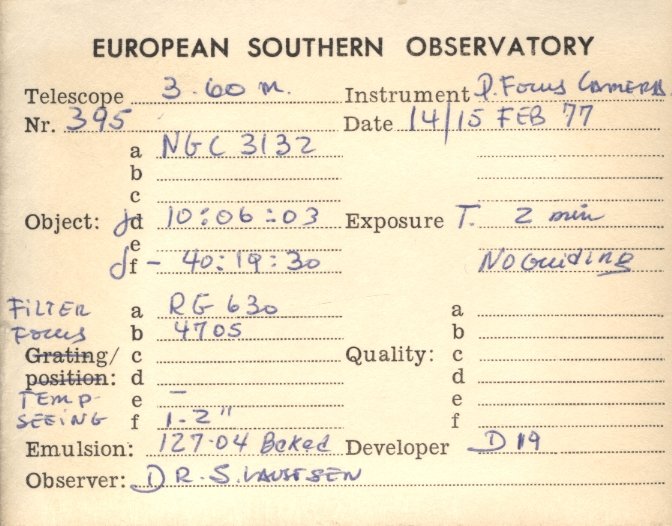 EUROPEAN SOUTHERN OBSERVATORY
Telescope 3.60 m. Instrument P. Focus CAMERA
Nr. 395 Date 14/15 FEB 77
a NGC 3132
b
c
Object: d 10:06:03 Exposure T. 2 min
e
f - 40:19:30 No Guiding
FILTER a RG 630 a
Focus b 4705 b
Grating/ c Quality: c
position: d d
TEMP- e – e
SEEING f 1-2" f
Emulsion: 127-04 Baked Developer D 19
Observer: DR. S. LAUSTSEN